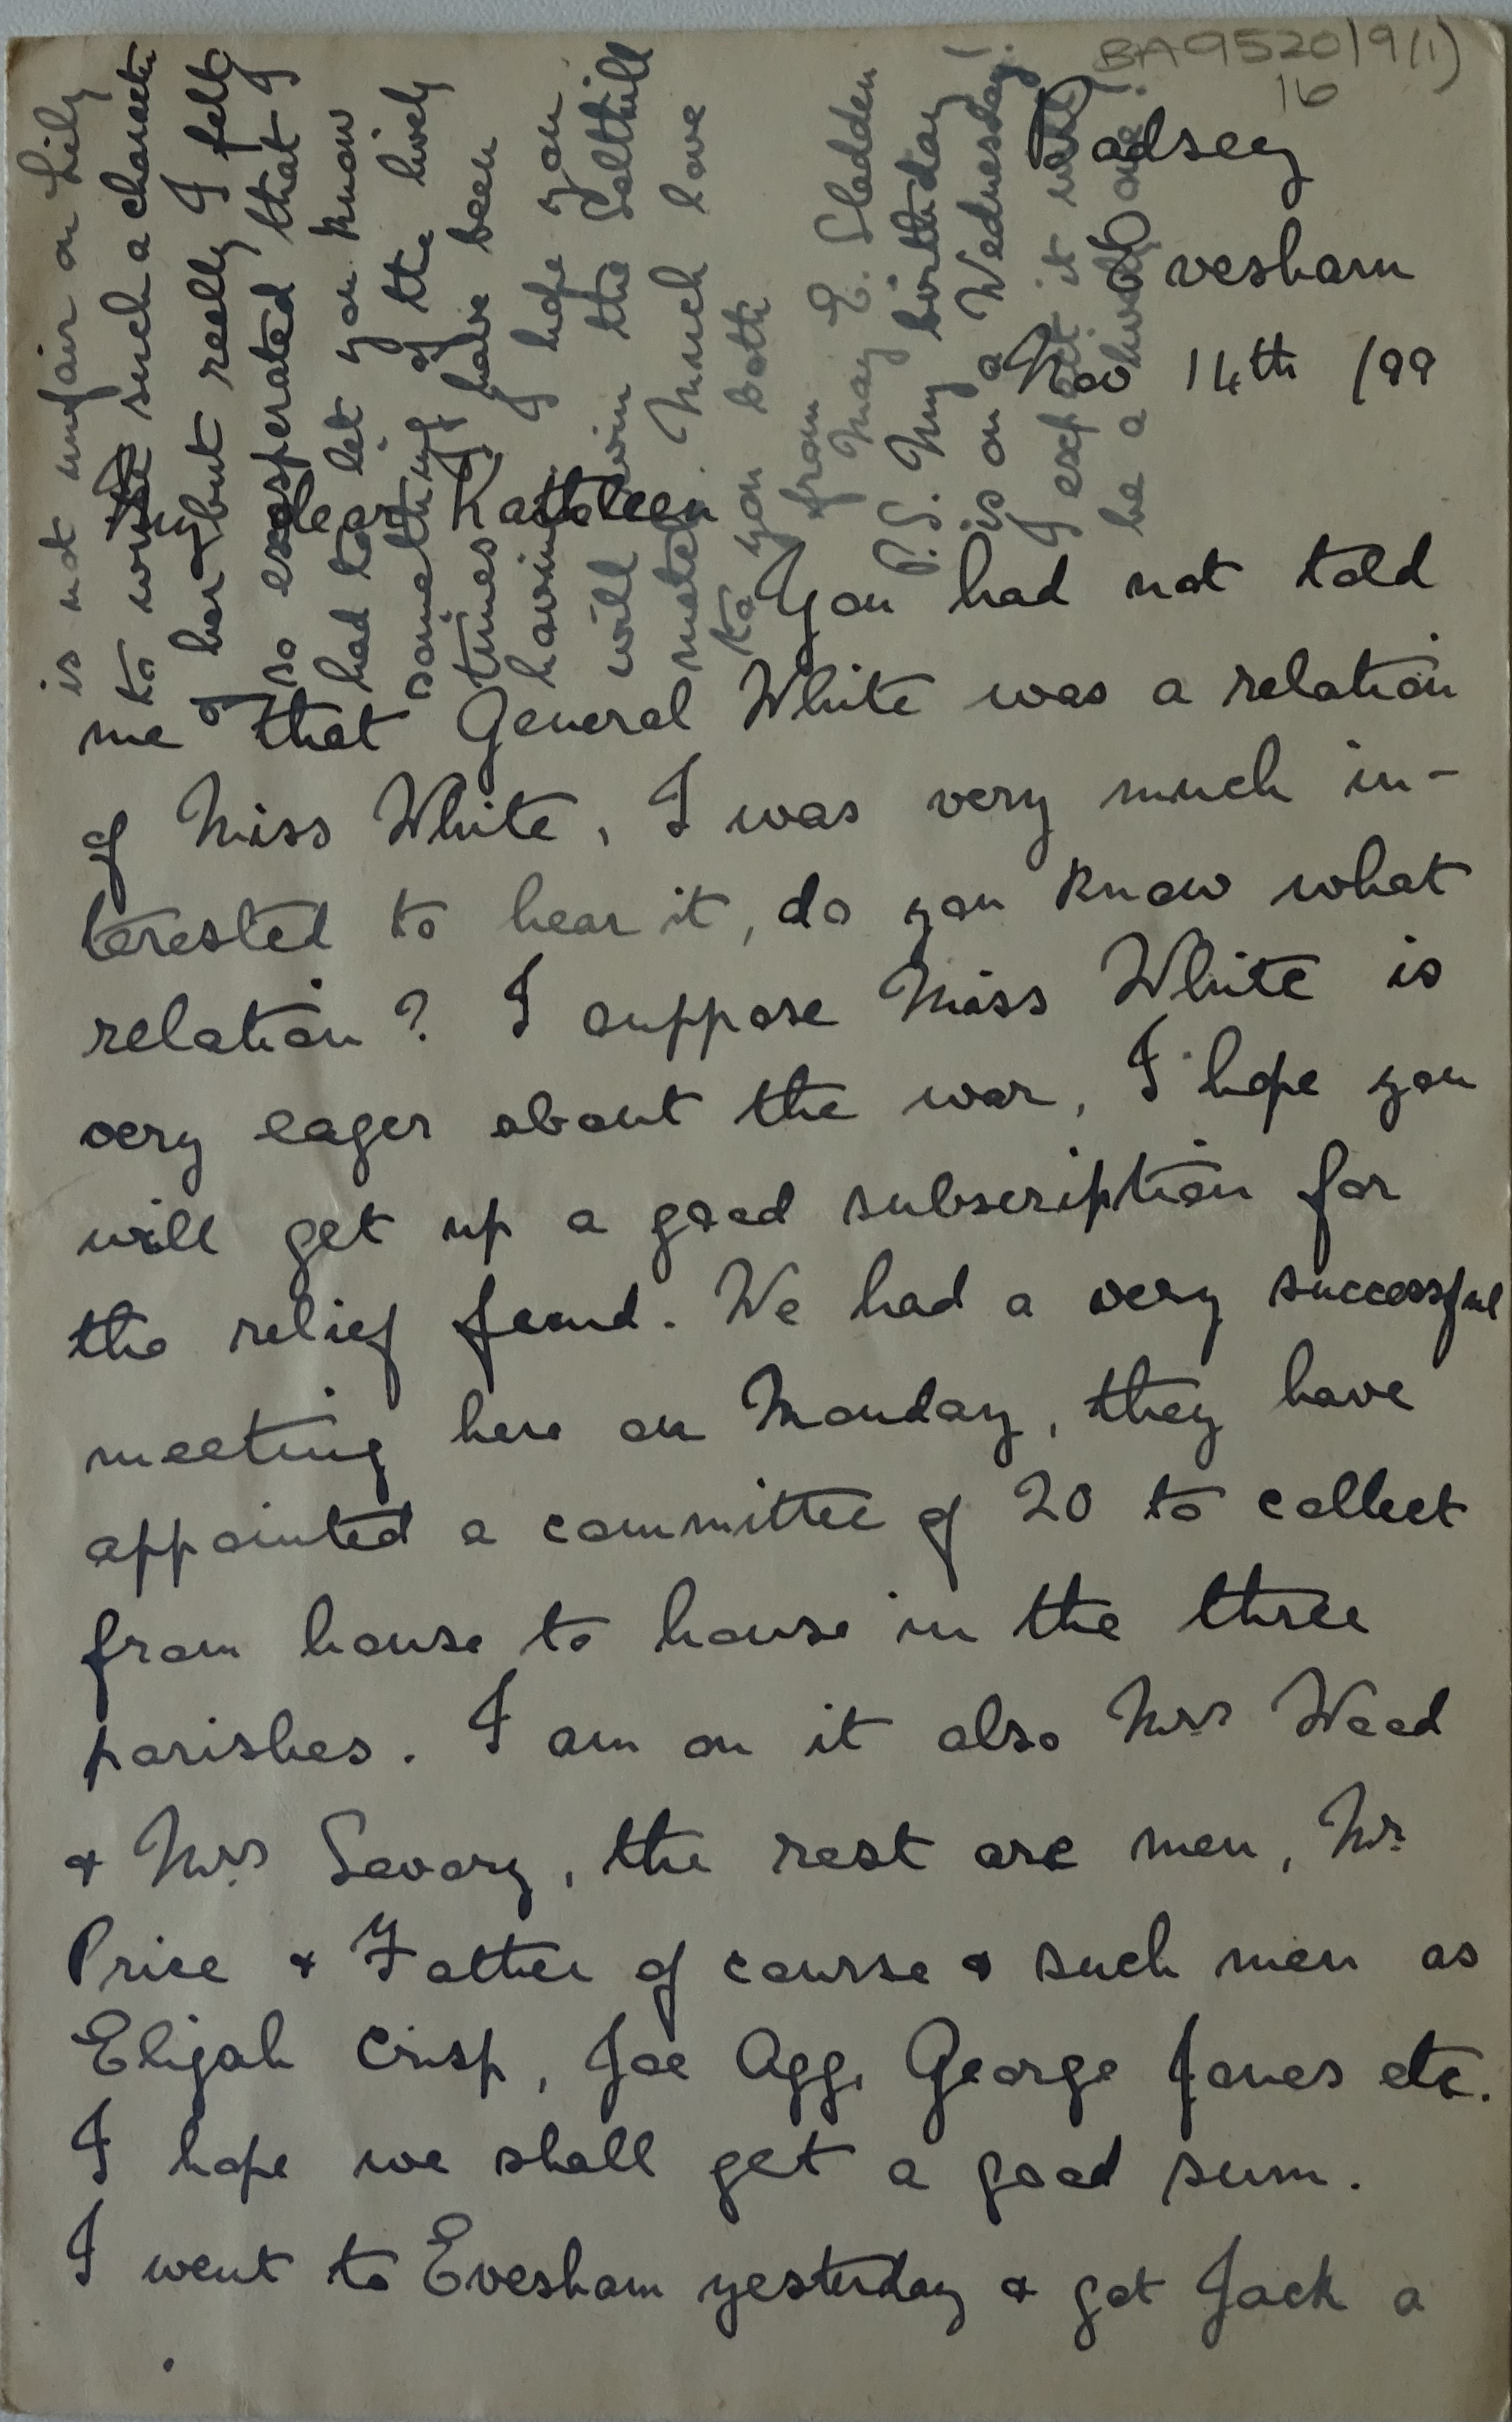 BA9520/9(1)
16
Badsey
Evesham
Nov 14th /99
My dear Kathleen
You had not told
me that General White was a relation
of Miss White, I was very much in-
terested to hear it, do you know what
relation? I suppose Miss White is
very eager about the war, I hope you
will get up a good subscription for
the relief fund. We had a very successful
meeting here on Monday, they have
appointed a committee of 20 to collect
from house to house in the three
parishes. I am on it also Mrs Wood
& Mrs Savory, the rest are men, Mr
Price & Father of course & such men as
Elijah Crisp, Joe Agg, George Jones etc.
I hope we shall get a good sum.
I went to Evesham yesterday & got Jack a
is not unfair on Lily
to write such a character
of her & but really I felt
so exasperated that I
had to let you know
something of the lively
times I have been
having. I hope you
will win the Solthill
match. Much love
to you both
from
May E. Sladden
P.S. My birthday
is on a Wednesday!
I expect it will
be a whole one!